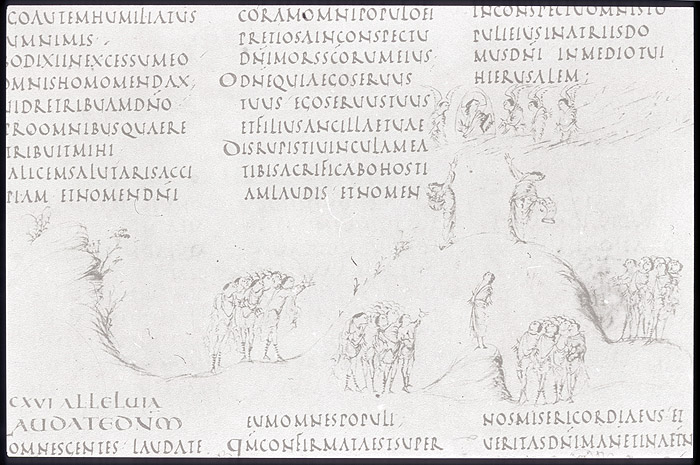 COAUTEMHUMILIATUS
UMNIMIS
BODIXIINEXCESSUMEO
OMNISHOMOMENDAX,
UIDRETRIBUAMDNO
PROOMNIBUSQUAERE
TRIBUITMIHI
ALICEMSALUTARISACCI
PIAM ETNOMENDNI
CORAMOMNIPOPULOEI
PRETIOSAINCONSPECTU
DNIMORSSCORUMEIUS
ODNEQUIAEGOSERUUS
TUUS EGOSERUUSTUUS
ETFILIUSANCILLAETUAE
DISRUPISTIUINCULAMEA
TIBISACRIFICABOHOSTI
AMLAUDIS ETNOMEN
INCONSPECTUOMNISPO
PULIEIUSINATRIISDO
MUSDNI INMEDIOTUI
HIERUSALEM;
CXVI ALLELUIA
LAUDATEDNM
OMNESGENTES LAUDATE
EUMOMNESPOPULI;
QMCONFIRMATAESTSUPER
NOSMISERICORDIAEUS ET
UERITASDNIMANETINAETN